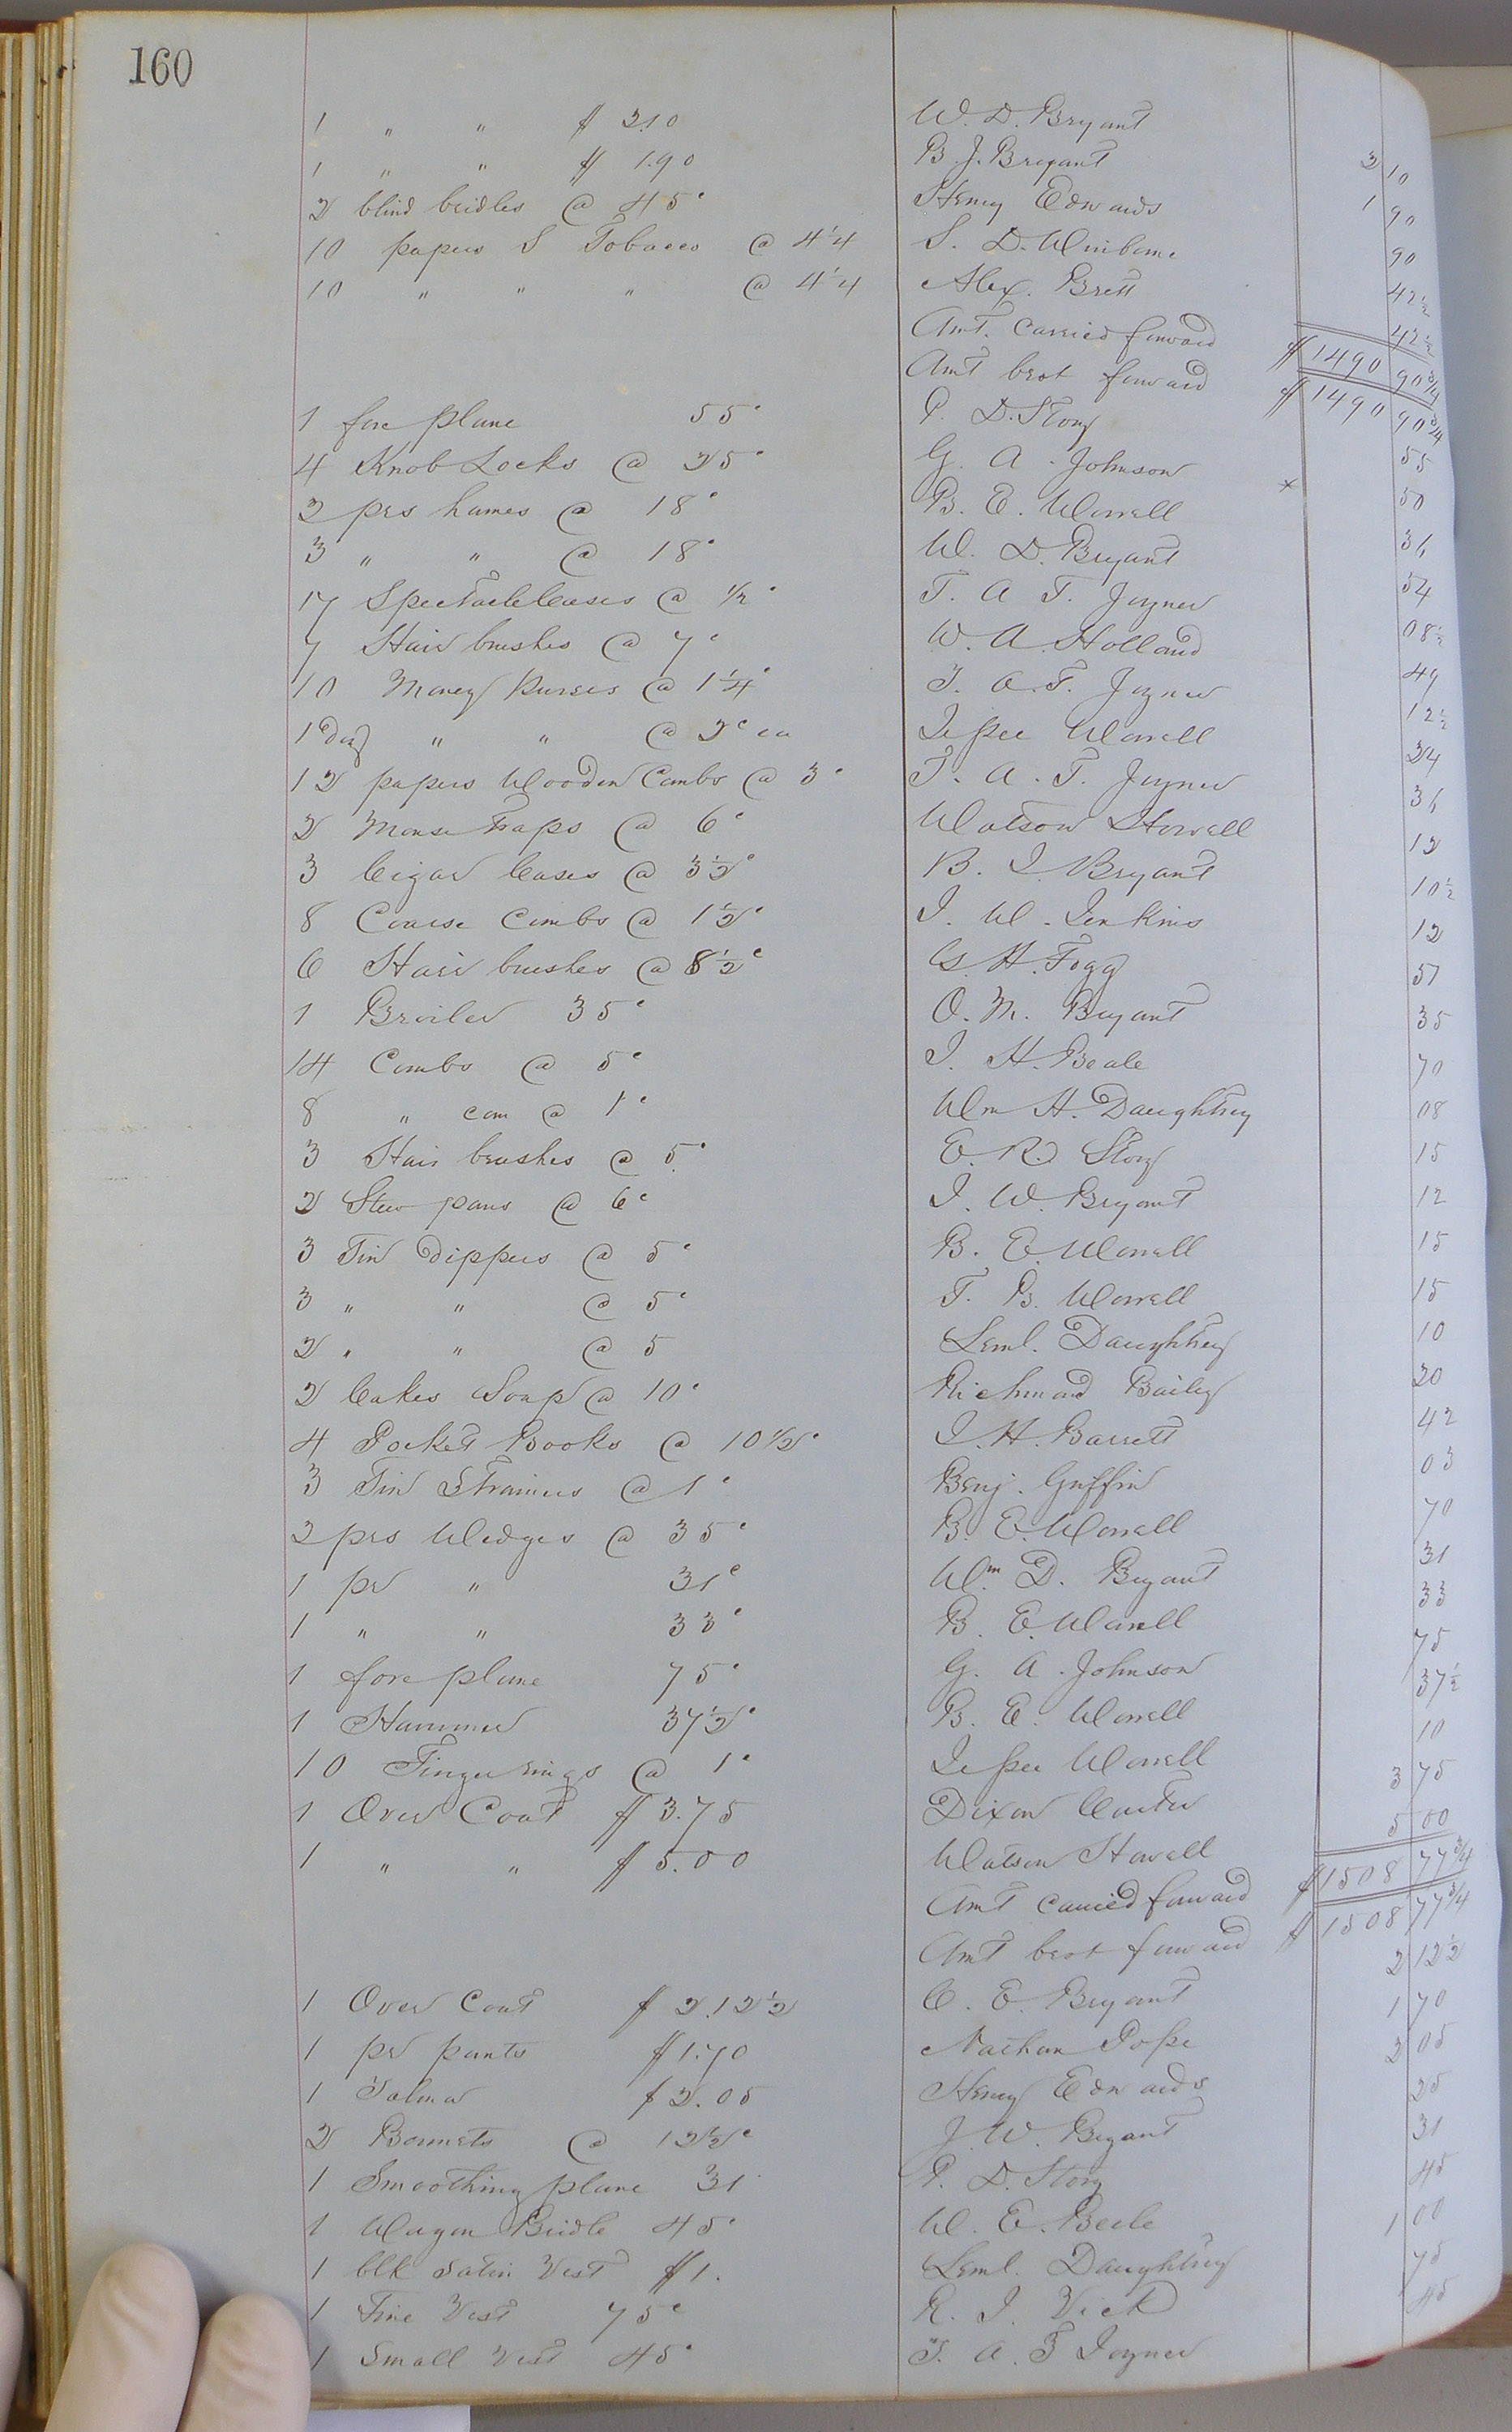 160
1 " " $ 2.10 W. D. Bryant 2 10
1 " " $ 1.90 B. J. Bryant 1 90
2 blind bridles @ 45c Henry Edwards 90
10 papers S Tobacco @ 4 1/4 S. D. Winborne 42 1/2
10 " " " @ 4 1/4 Alex. Brett 42 1/2
Amt. Carried forward $ 1490 90 3/4
Amt brot forward $ 1490 90 3/4
1 fore plane 55c P. D. Story 55
4 Knob Locks @ 25c G. A. Johnson × 50
2 prs hames @ 18c B. E. Worrell 36
3 " " @ 18c W. D. Bryant 54
17 Spectacle Cases @ 1/2c T. A. T. Joyner 08 1/2
7 Hair brushes @ 7c W. A. Holland 49
10 Money Purses @ 1 1/4c T. A. T. Joyner 12 1/2
1 Doz " " @ 2c ea Jessee Worrell 24
12 papers Wooden Combs @ 3c T. A. T. Joyner 36
2 Mouse Traps @ 6c Watson Howell 12
3 Cigar Cases @ 3 1/2c B. J. Bryant 10 1/2
8 Coarse Combs @ 1 1/2c J. W. Jenkins 12
6 Hair brushes @ 8 1/2c G. H. Fogg 51
1 Broiler 35c O. M. Bryant 35
14 Combs @ 5c J. H. Beale 70
8 " com @ 1c Wm H. Daughtrey 08
3 Hair brushes @ 5c E. R. Story 15
2 Stew pans @ 6c J. W. Bryant 12
3 Tin Dippers @ 5c B. E. Worrell 15
3 " " @ 5c T. B. Worrell 15
2 " " @ 5 Leml. Daughtrey 10
2 Cakes Soap @ 10c Richmond Bailey 20
4 Pocket Books @ 10 1/2c J. H. Barrett 42
3 Tin Strainers @ 1c Benj. Griffin 03
2 prs Wedges @ 35c B. E. Worrell 70
1 pr " 31c Wm D. Bryant 31
1 " " 33c B. E. Worrell 33
1 fore plane 75c G. A. Johnson 75
1 Hammer 37 1/2c B. E. Worrell 37 1/2
10 Finger rings @ 1c Jessee Worrell 10
1 Over Coat $ 3.75 Dixon Carter 3 75
1 " " $ 5.00 Watson Howell 5 00
Amt carried forward $ 1508 77 3/4
Amt brot forward $ 1508 77 3/4
1 Over Coat $ 2.12 1/2 C. E. Bryant 2 12 1/2
1 pr pants $ 1.70 Nathan Pope 1 70
1 Talma $ 2.05 Henry Edwards 2 05
2 Bonnets @ 12 1/2c J. W. Bryant 25
1 Smoothing plane 31 P. D. Story 31
1 Wagon Bridle 45c W. E. Beele 45
1 blk Satin Vest $ 1. Leml. Daughtrey 1 00
1 Fine Vest 75c R. J. Vick 75
1 Small Vest 45c T. A. T Joyner 45